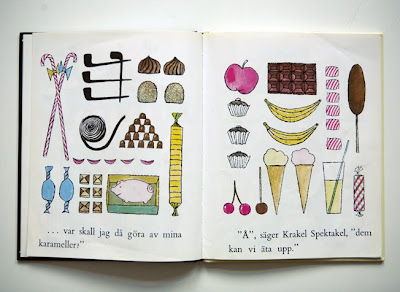 ... var skall jag då göra av mina
karameller?"
"Ä", säger Krakel Spektakel, "dem
kan vi äta upp."